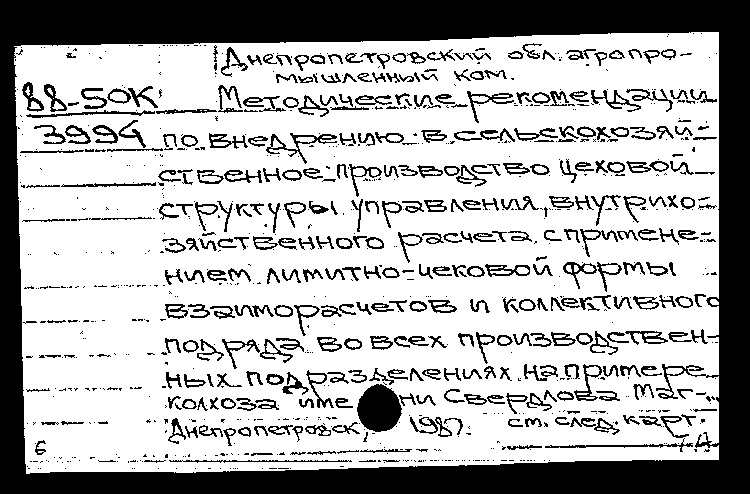 Днепропетровский обл. агропро-
мышленный ком.
88-50К Методические рекомендации
3994 по внедрению в сельскохозяй-
ственное производство цеховой
структуры управления, внутрихо-
зяйственного расчета с примене-
нием лимитно-чековой формы
взаиморасчетов и коллективного
подряда во всех производствен-
ных подразделениях на примере
колхоза име ни Свердлова Маг-...
Днепропетровск, 1987. см. след. карт.
6